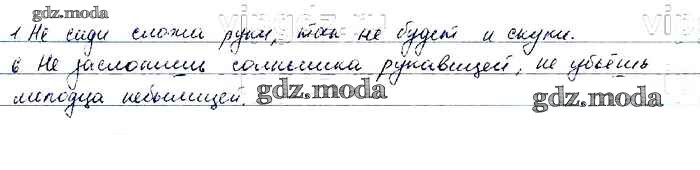 gdz.moda
1 Не сиди сложа руки, так не будет и скуки.
6 Не заслонишь солнышка рукавицей, не убьёшь
молодца небылицей.
gdz.moda
gdz.moda